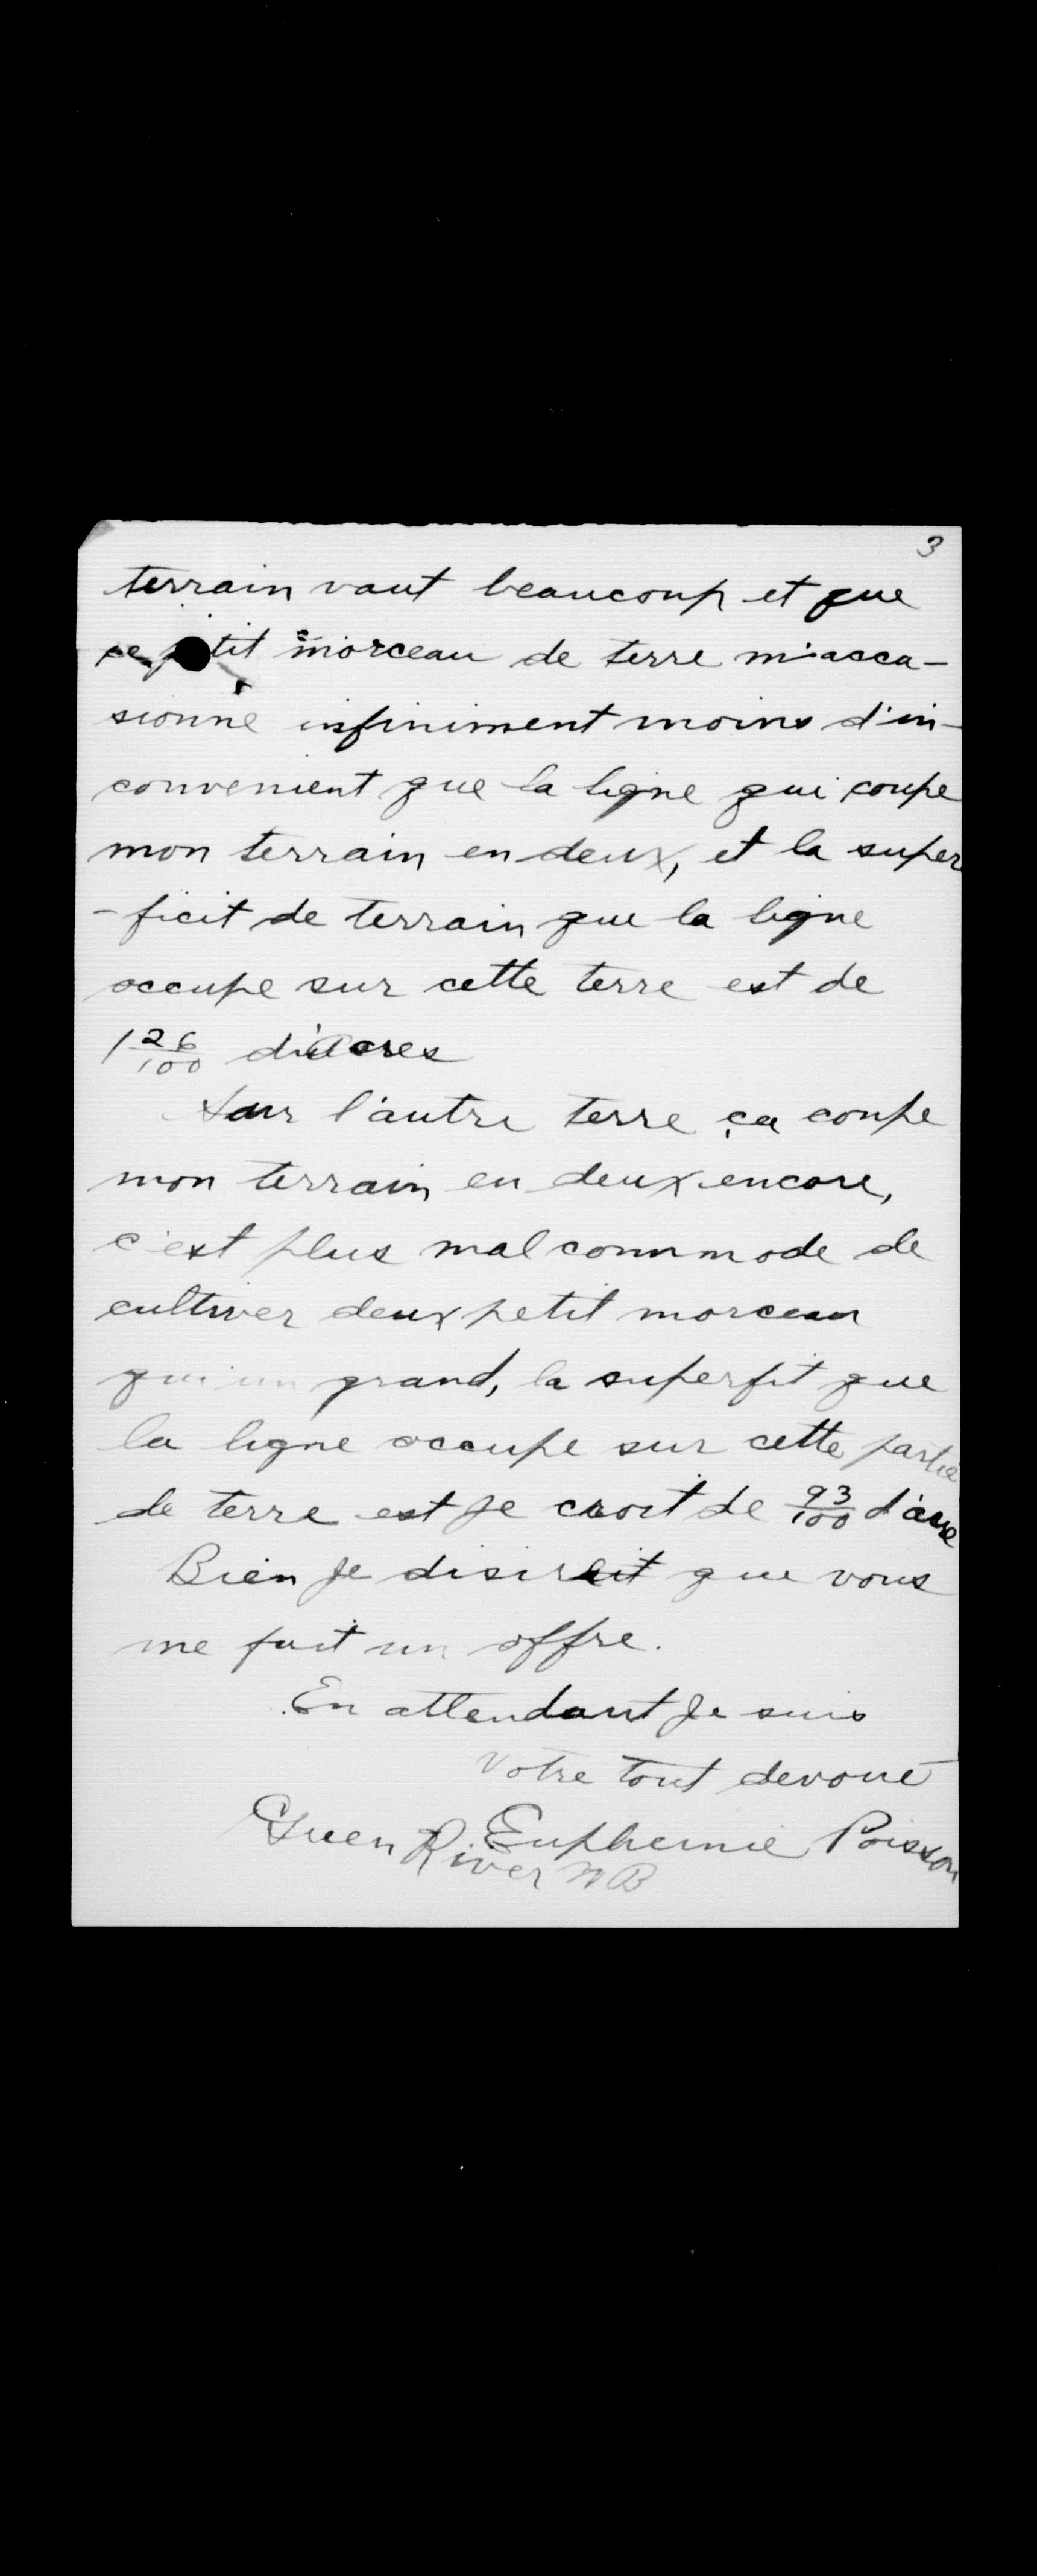 3
terrain vaut beaucoup et que
ce petit morceau de terre m'acca-
sionne infiniment moins d'in-
convenient que la ligne qui coupe
mon terrain en deux, et la super
-ficit de terrain que la ligne
occupe sur cette terre est de
1 26/100 d'acres
Sur l'autre terre ça coupe
mon terrain en deux encore,
c'est plus mal commode de
cultiver deux petit morceau
qui un grand, la superfit que
la ligne occupe sur cette partie
de terre est je croit de 93/100 d'acre
Bien je disirait que vous
me fait un offre.
En attendant je suis
Votre tout devoué
Euphemie Poisson
Green River N B